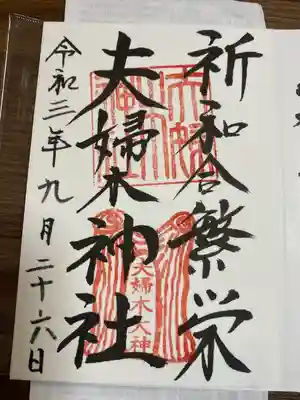 祈和合繁栄
夫婦木神社
令和三年九月二十六日
夫婦木大神